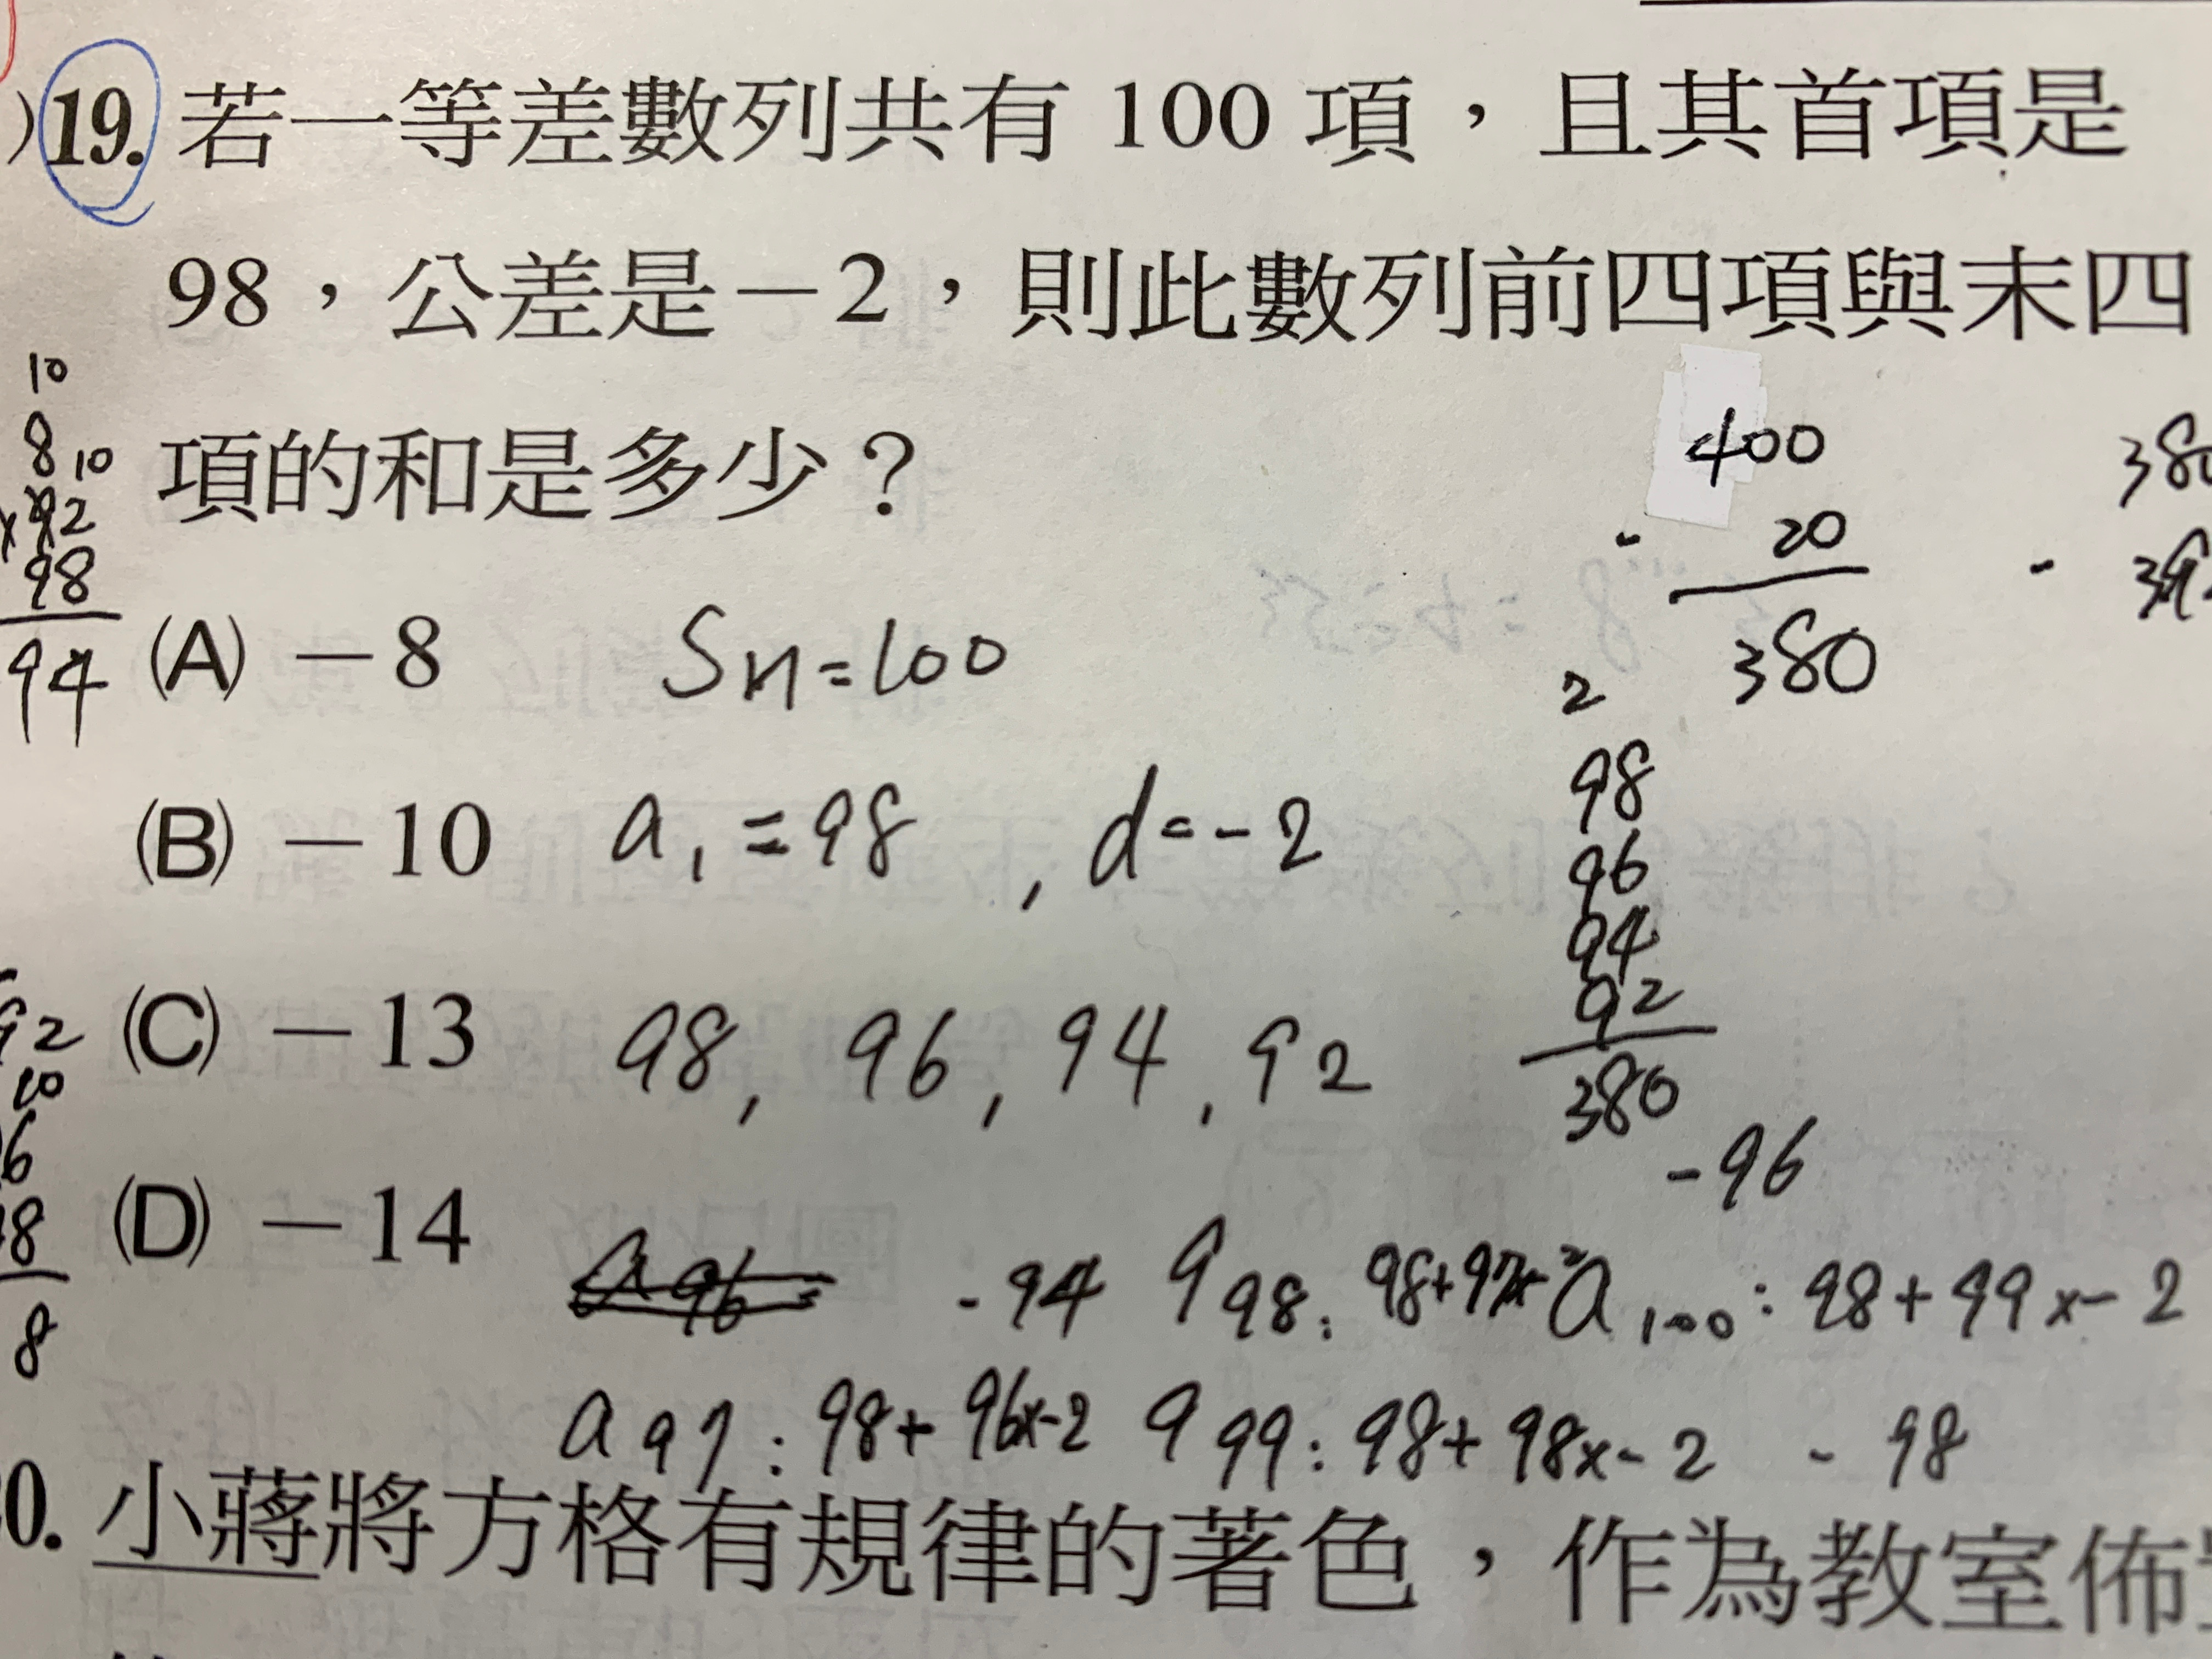 19. 若一等差數列共有 100 項，且其首項是
98，公差是－2，則此數列前四項與末四
項的和是多少？
10
8 10
92
98
94
400
- 20
380
380
-
(A) －8
Sn=100
(B) －10
a1=98, d=-2
2
98
96
94
92
380
(C) －13
98, 96, 94, 92
92
10
6
8
8
(D) －14
-96
-94
a98: 98+97x-2
a100: 98+99x-2
a97: 98+96x-2
a99: 98+98x-2
-98
0. 小蔣將方格有規律的著色，作為教室佈